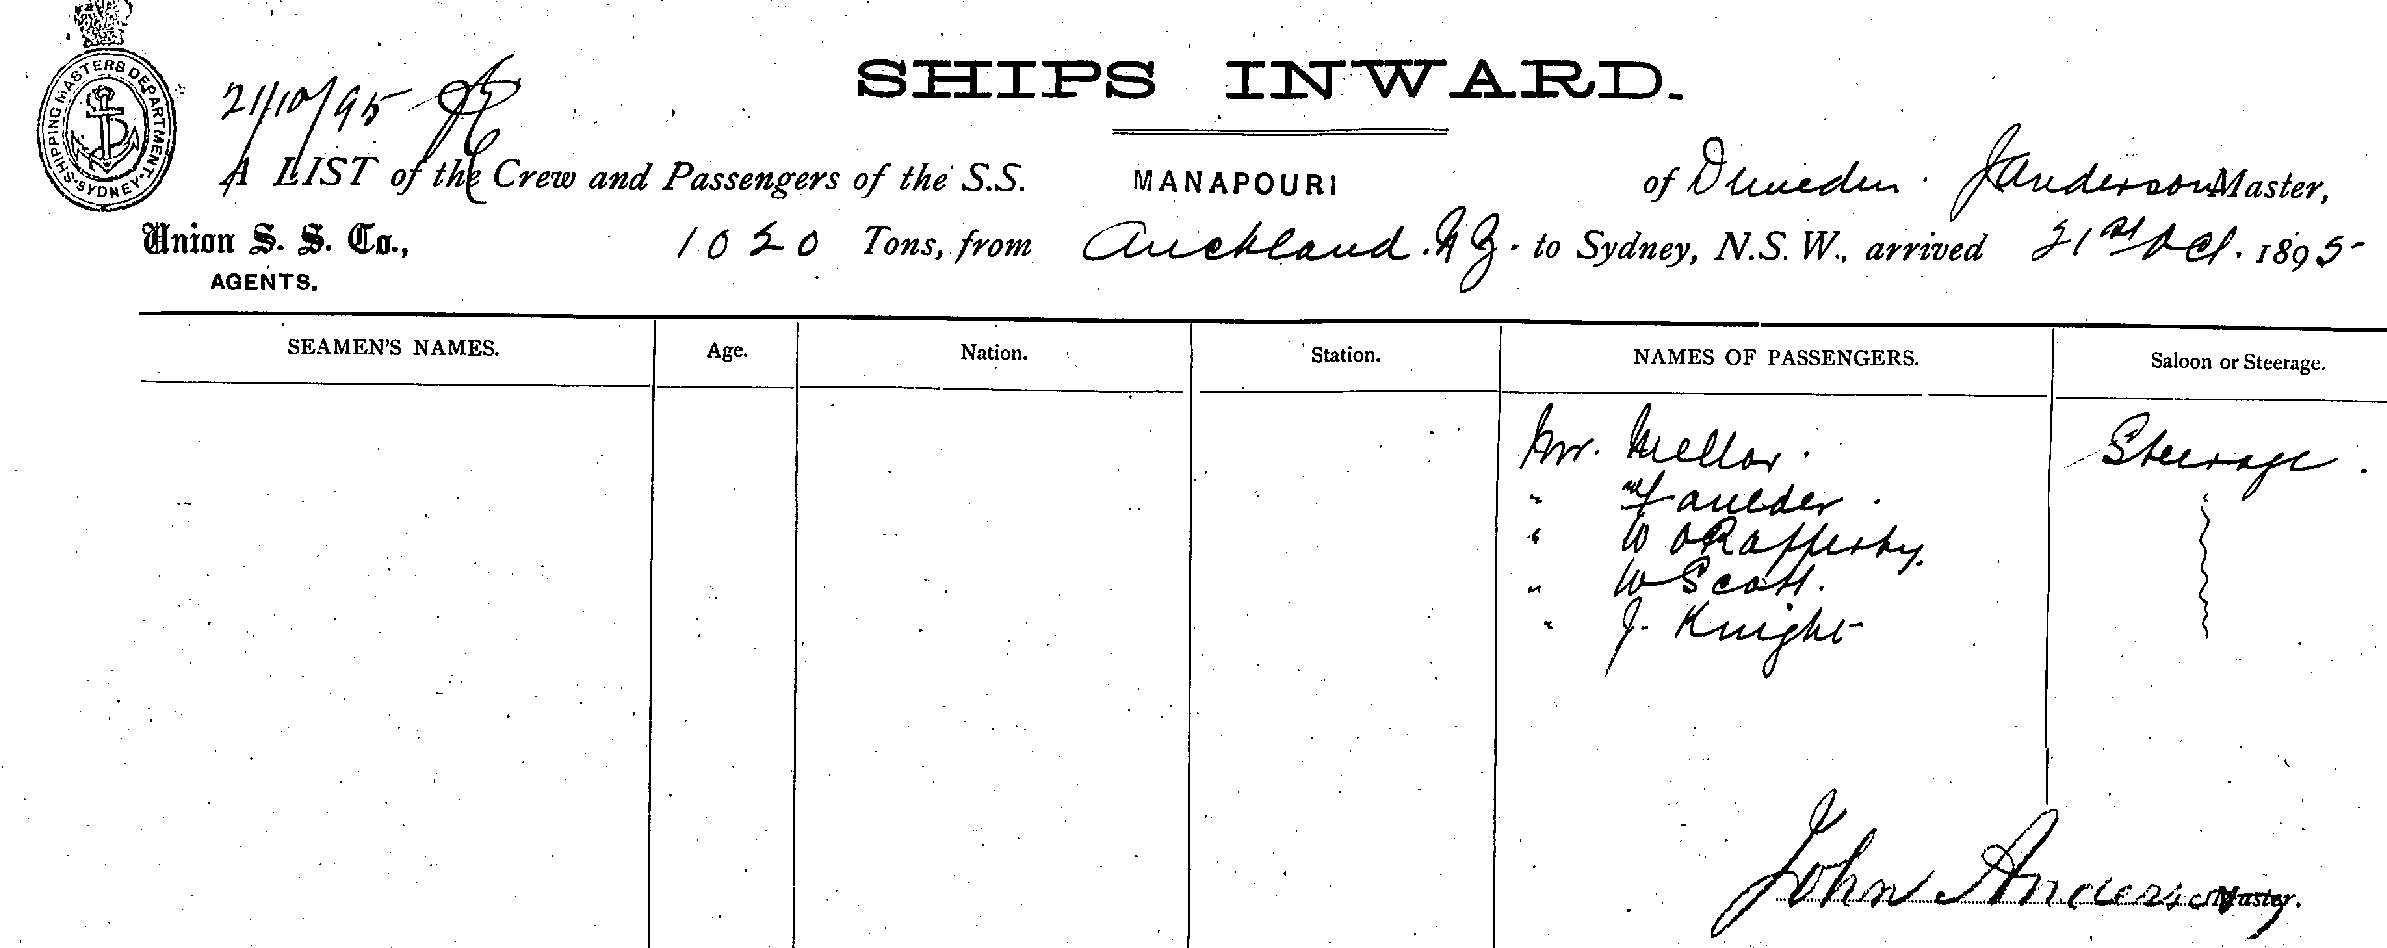 SHIPPING MASTERS DEPARTMENT. SYDNEY
21/10/95
SHIPS INWARD.
A LIST of the Crew and Passengers of the S.S. MANAPOURI of Dunedin. J Anderson Master,
Union S. S. Co., 1020 Tons, from Auckland. N Z. to Sydney, N.S.W., arrived 21st Oct. 1895
AGENTS.
SEAMEN'S NAMES. Age. Nation. Station. NAMES OF PASSENGERS. Saloon or Steerage.
Mr. Mellor. Steerage.
" Faulder.
" W O Rafferty.
" W Scott.
" J. Knight
John Anderson Master.